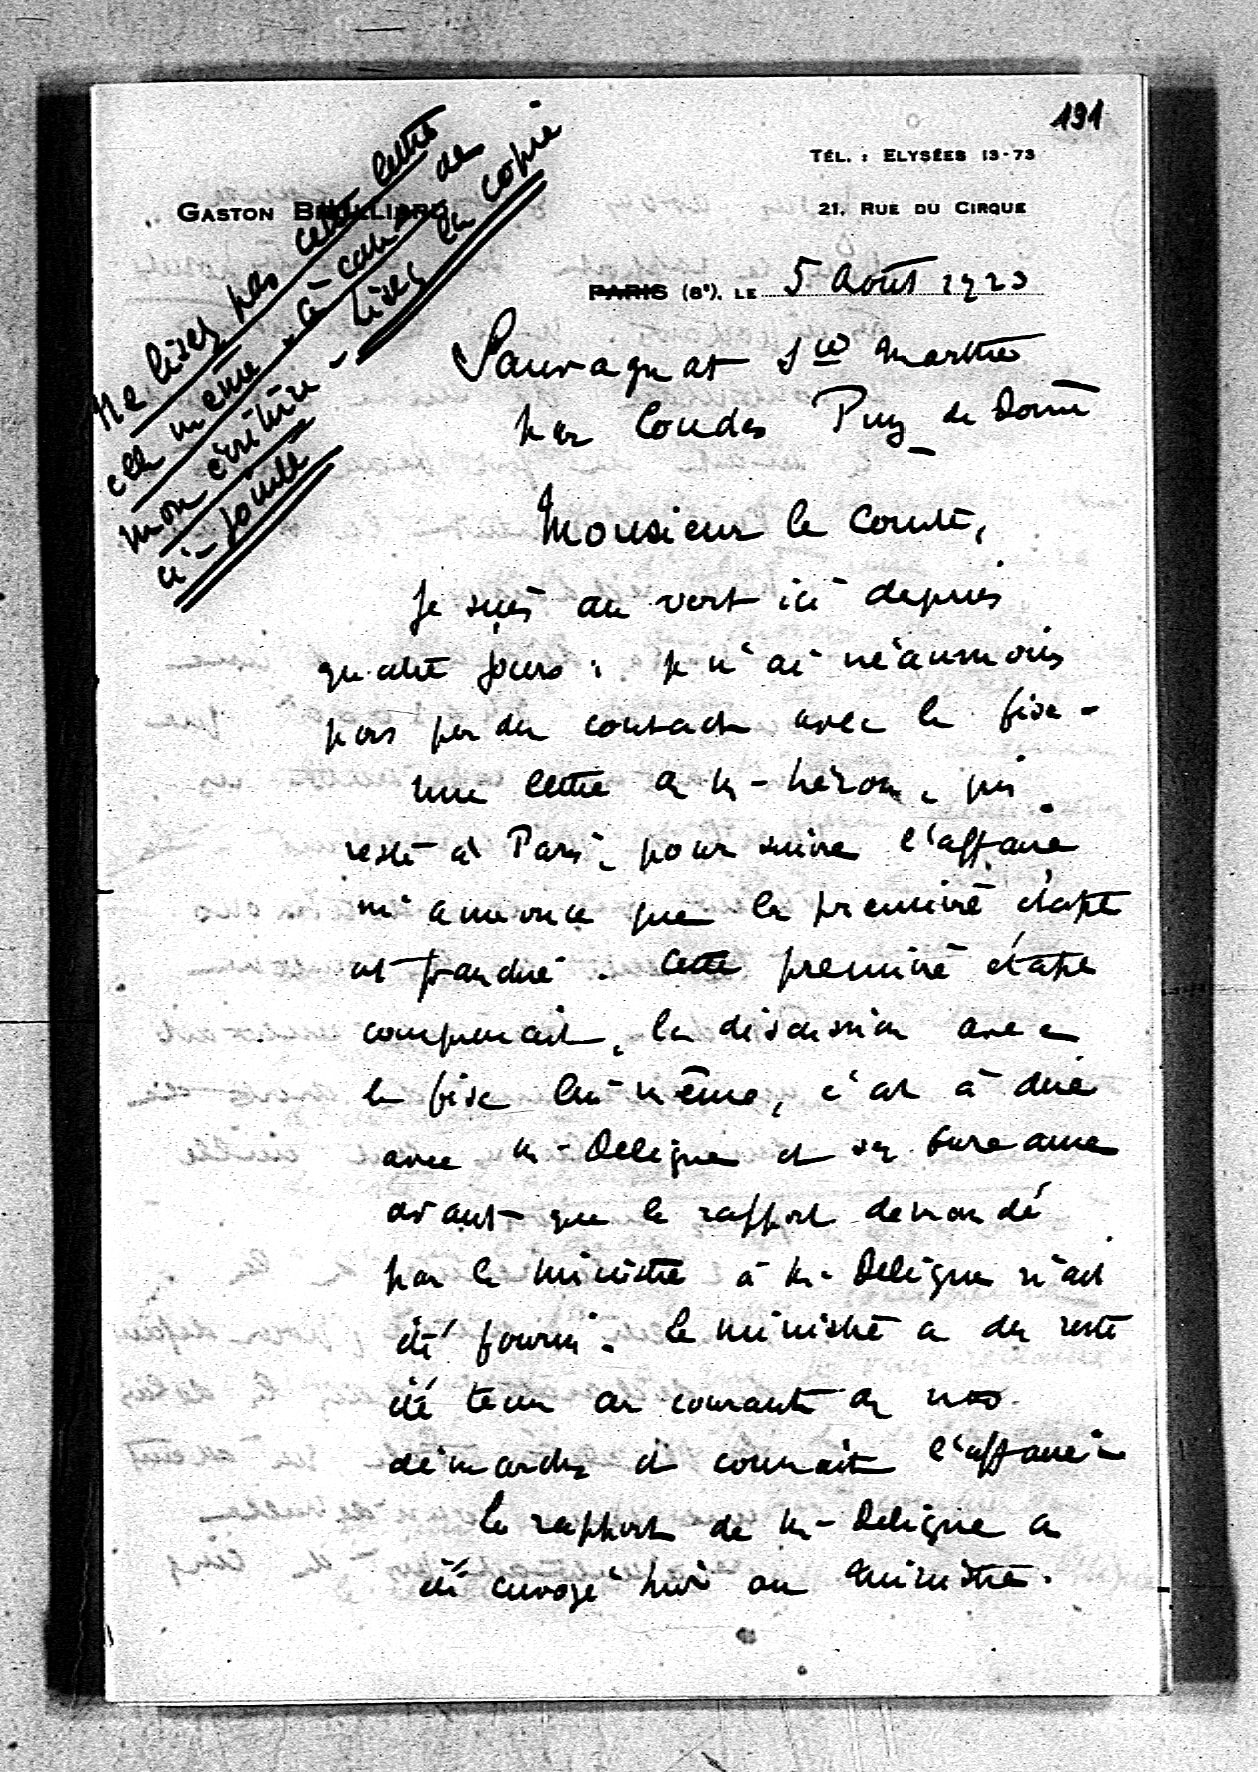 191
TÉL. : ELYSÉES 13-73
GASTON
21, RUE DU CIRQUE
PARIS (8e), LE 5 Août 1923
Ne lisez pas cette lettre
elle même - à cause de
mon écriture - lisez la copie
ci-jointe
Sauvagnat Ste Marthe
par Coudes Puy de Dôme
Monsieur le Comte,
Je suis au vert ici depuis
quatre jours : je n'ai néanmoins
pas perdu contact avec le fisc -
une lettre de M - Héron, qui
resté à Paris, pour suivre l'affaire
m'annonce que la première étape
est franchie. Cette première étape
comprenait, la discussion avec
le fisc lui même, c'est à dire
avec M - Deligne et ses bureaux
avant que le rapport demandé
par le ministre à M - Deligne n'ait
été fourni. Le ministre a du reste
été tenu au courant de nos
démarches et connait l'affaire -
Le rapport de M - Deligne a
été envoyé hier au Ministre.